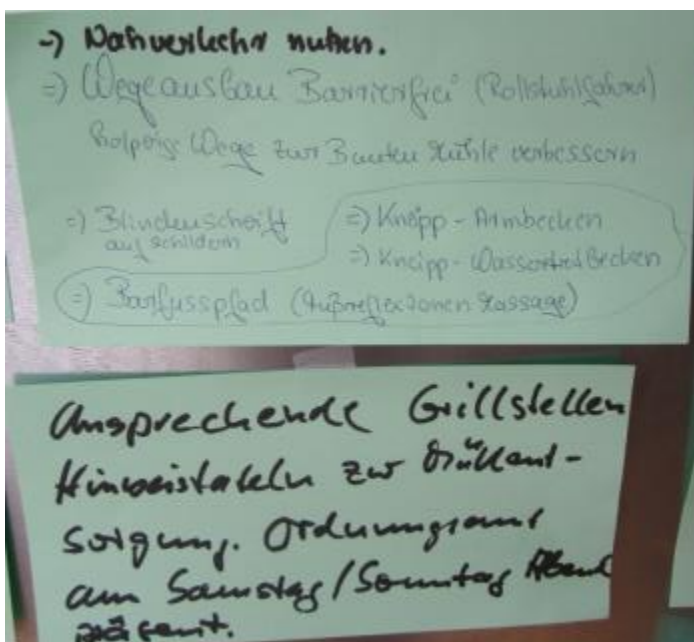 -> Nahverkehr nutzen.
=> Wegeausbau Barrierfrei (Rollstuhlfahrer)
holprige Wege zur Bunten Mühle verbessern
=> Blindenschrift
auf schildern
=> Kneipp - Armbecken
=> Kneipp - Wassertretbecken
=> Barfusspfad (Fußreflexzonen Massage)
Ansprechende Grillstellen
Hinweistafeln zur Müllent-
sorgung. Ordnungsamt
am Samstag/Sonntag Abend
präsent.